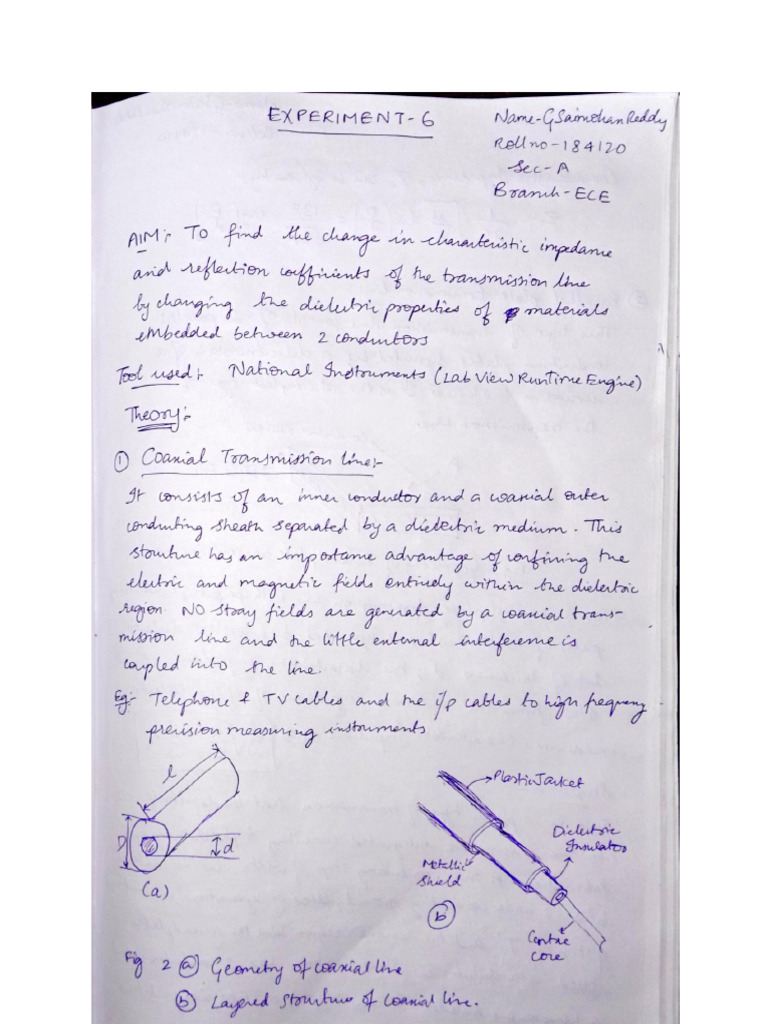 EXPERIMENT-6
Name-G Saimohan Reddy
Roll no-184120
Sec-A
Branch-ECE
AIM:- To find the change in characteristic impedance
and reflection coefficients of the transmission line
by changing the dielectric properties of materials
embedded between 2 conductors
Tool used:- National Instruments (Lab View RunTime Engine)
Theory:-
① Coaxial Transmission line:-
It consists of an inner conductor and a coaxial outer
conducting sheath separated by a dielectric medium. This
structure has an importance advantage of confining the
electric and magnetic fields entirely within the dielectric
region. NO stray fields are generated by a coaxial trans-
mission line and the little external interference is
coupled into the line.
Eg:- Telephone & TV cables and the i/p cables to high frequency
precision measuring instruments
l
D
d
(a)
Plastic Jacket
Dielectric
Insulator
Metallic
Shield
ⓑ
Centre
core
Fig 2 ⓐ Geometry of coaxial line
ⓑ Layered structure of coaxial line.